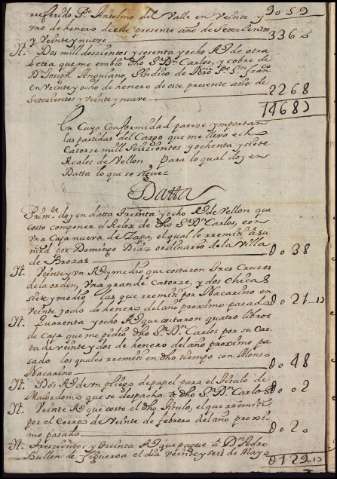 referido Sr. Anselmo del Valle en Veinte y 9059
uno de henero de este presente año de Setecientos
y Veinte y nueve 3365
It. Dos mill doscientos y sesenta y ocho Rs. de otra
letra que me embio dho Sr. Dn. Carlos, y cobre de
Dn. Joseph Sindico de dho Sn. Juan
en Veinte y uno de henero de este presente año de
Setecientos y Veinte y nueve 2268
14682
En Cuya Conformidad parece ymportan
las partidas del Cargo que me llevo echo
Catorze mill Seiscientos y ochenta y dos
Reales de Vellon Para lo qual doy en
Datta lo que se sigue
Datta
Primte. doy en datta treinta y ocho Rs. de Vellon que
costo componer el Relox de dho Sr. Dn. Carlos, con
una Caja nueva de Zapa, el qual lo remiti
por Domingo ordinario de la Villa
de Brozas 0038
It. Veinte y un Rs. y medio que costaron tres Cruces
de la orden, Una grande Catorze, y dos chicas
siete y medio las que remiti por Macarino en
Veinte y ocho de henero del año proximo pasado 0021
It. quarenta y ocho Rs. que costaron quatro libros
de Caja que me pidio dho Sr. Dn. Carlos por su Carta
de veinte y dos de henero del año proximo pa
sado los quales remiti en dho tiempo con Alonso
Macarino 0048
It. Dos Rs. de un pliego de papel para el titulo de
que se despacho a dho Sr. Dn. Carlos 0002
It. Veinte Rs. que costo el dho titulo, el que remiti
por el Correo de Veinte de febrero del año proxi
mo pasado 0020
It. trescientos y treinta Rs. que pague a Dn. Pedro
Guillen de Figueroa el dia Veinte y seis de Mayo 0129